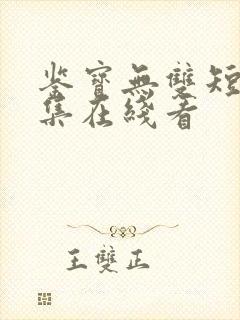 鉴寶無雙短
集在綫看
王雙正